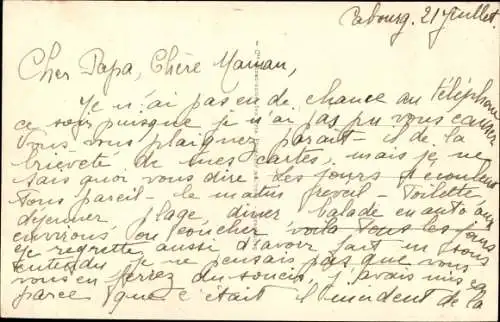 Cabourg. 21 Juillet.
Cher Papa, Chère Maman,
Je n'ai pas eu de chance au téléphone
ce soir puisque je n'ai pas pu vous causer
Vous vous plaignez parait-il de la
brièveté de mes cartes, mais je ne
sais quoi vous dire. Les jours s'écoulent
tous pareil - le matin réveil - Toilette
déjeuner plage, diner balade en auto aux
environs ou coucher voila tous les jours
Je regrette aussi d'avoir fait un
entendu je ne pensais pas que vous
vous en feriez du soucis, j'avais mis ça
parce que c'était incident de la